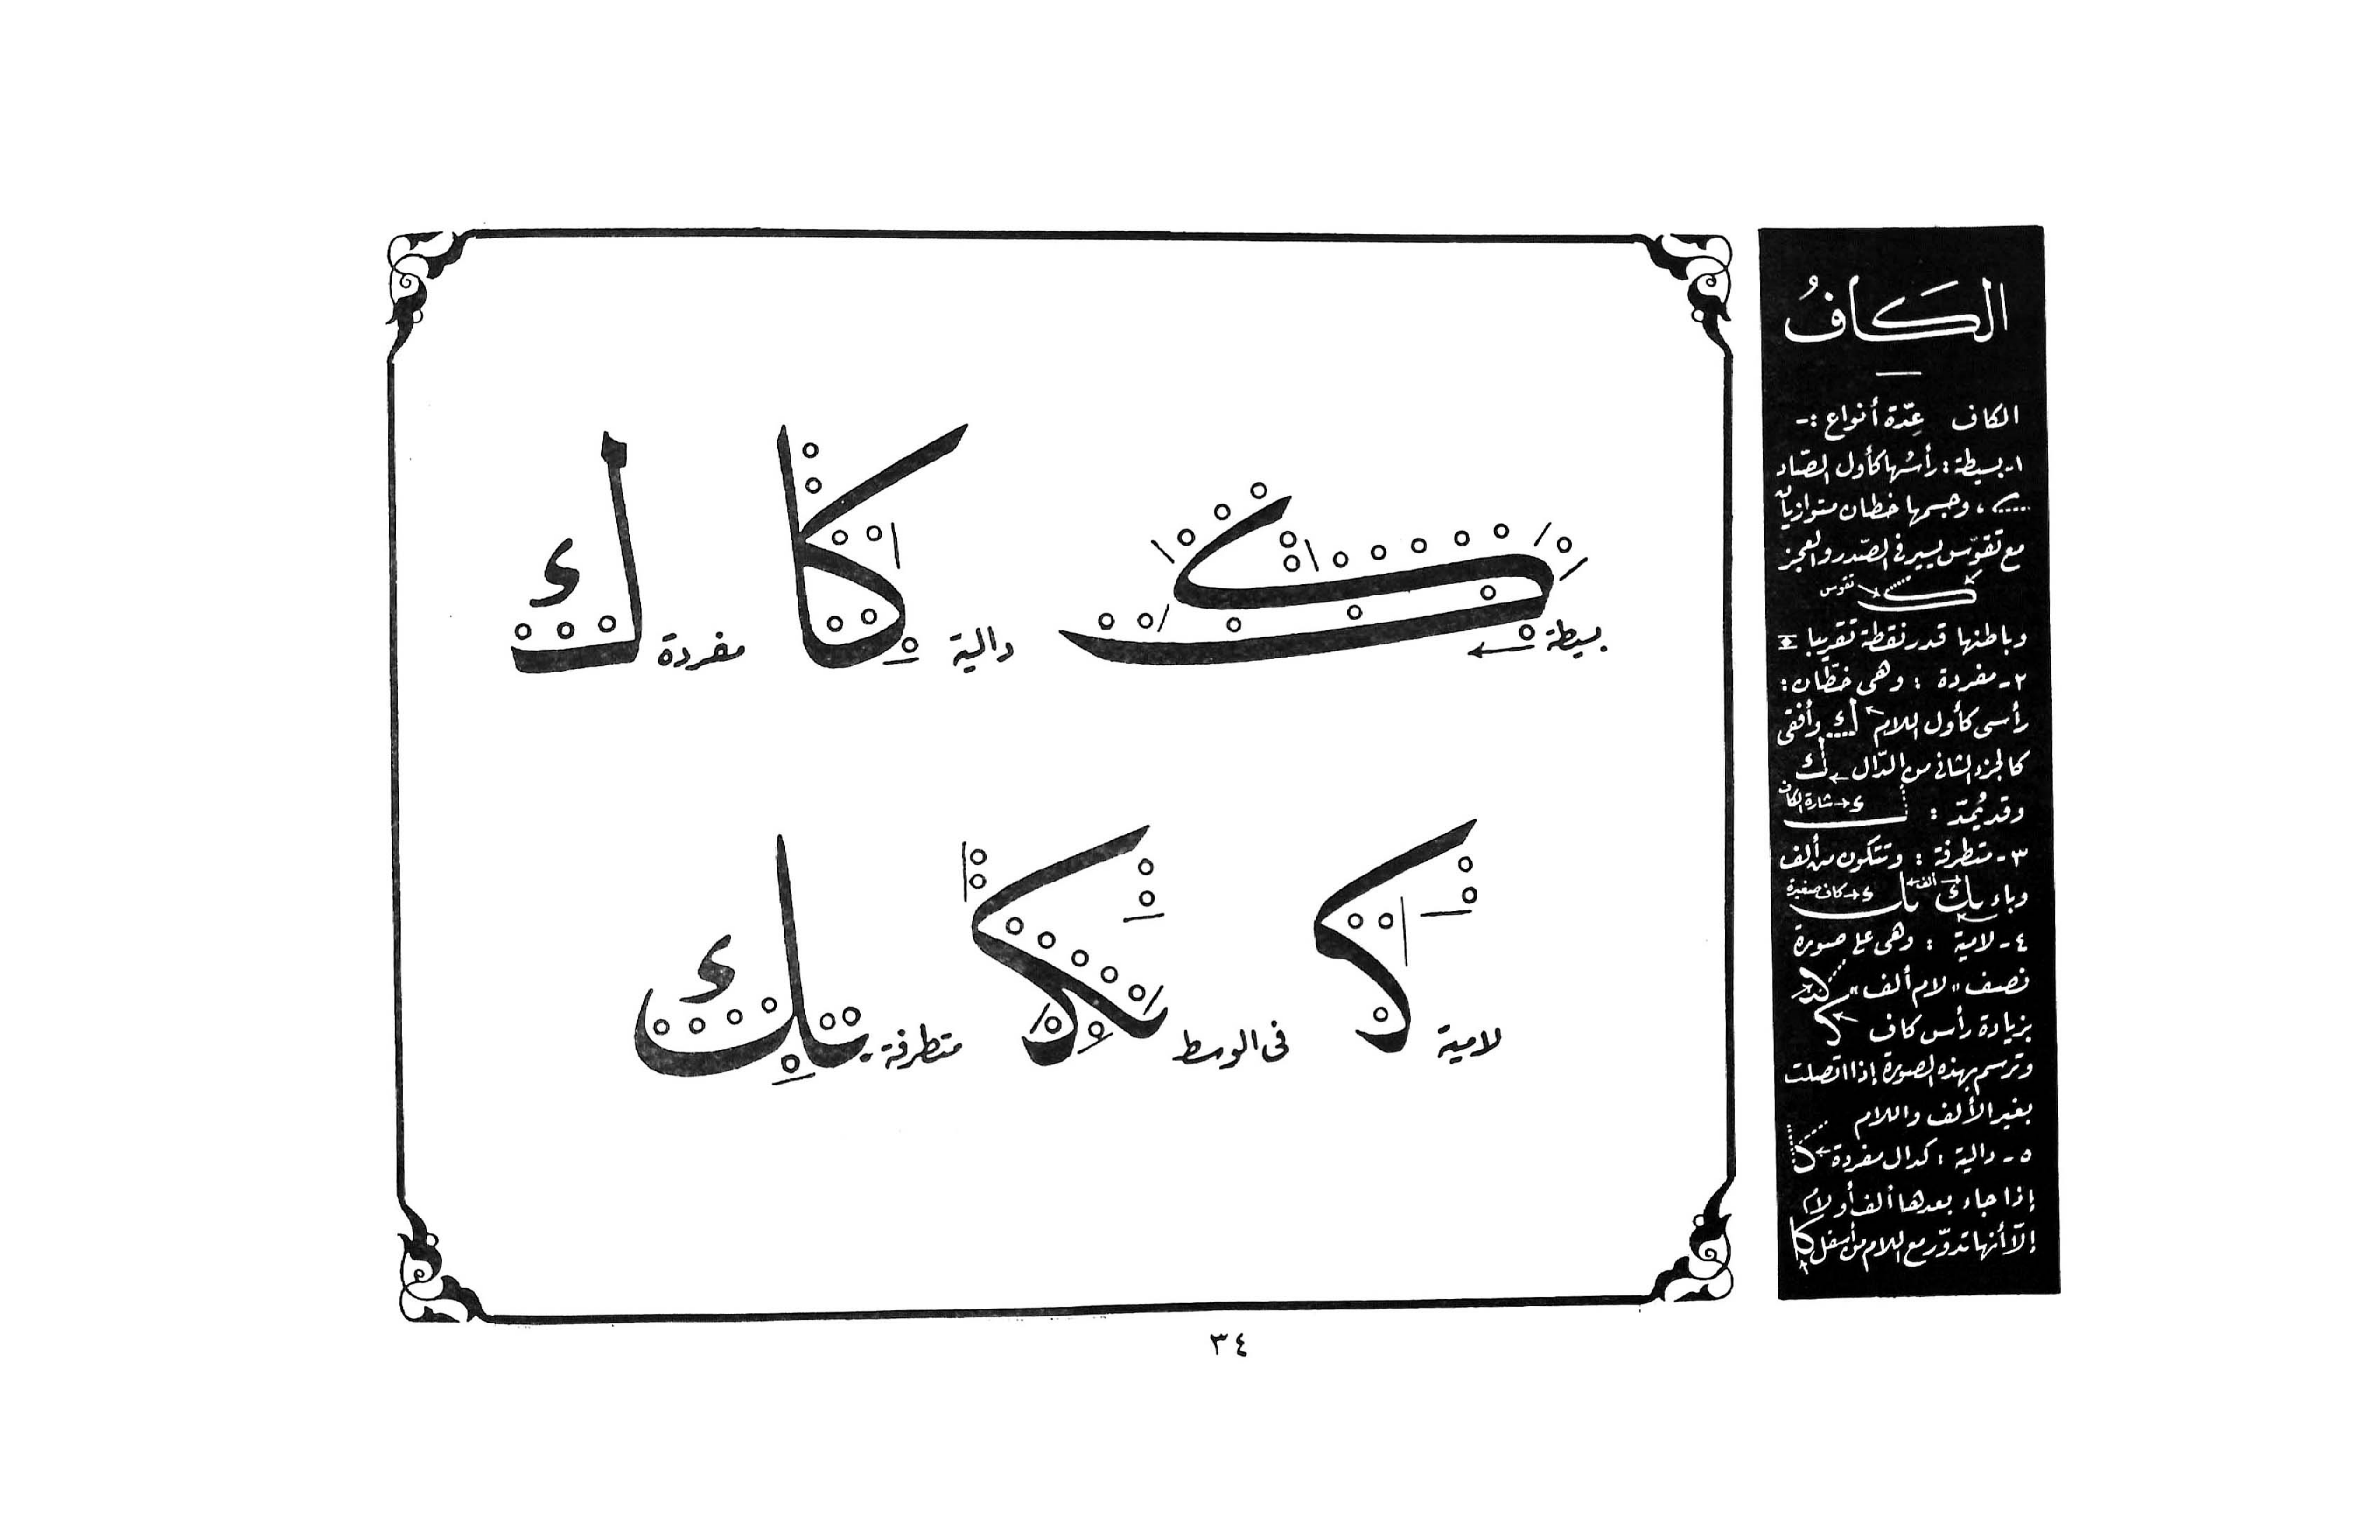 الكَافُ
الكاف عِدّة أنواع :-
١- بسيطة : رأسُها كأول الصّاد
، وجسمها خطان متوازيان
مع تقوّس يسير فى الصّدر والعجز
تقوس
وباطنها قدر نقطة تقريبا
٢- مفردة : وهى خطّان :
رأسى كأول اللام ك وأفقى
كالجزء الثانى من الدّال ك
وقد يُمدّ : شارة الكاف
٣- متطرفة : وتتكون من ألف
وباء ألف كاف صغيرة
٤- لامية : وهى على صورة
نصف "لام ألف"
بزيادة رأس كاف
وترسم بهذه الصورة إذا اتصلت
بغير الألف واللام
٥- دالية : كدال مفردة
إذا جاء بعدها ألف أو لام
إلّا أنها تدوّر مع اللام من أسفل كا
بسيطة ك
دالية كا
مفردة ك
لامية ك
فى الوسط ككد
متطرفة ـك
٣٤